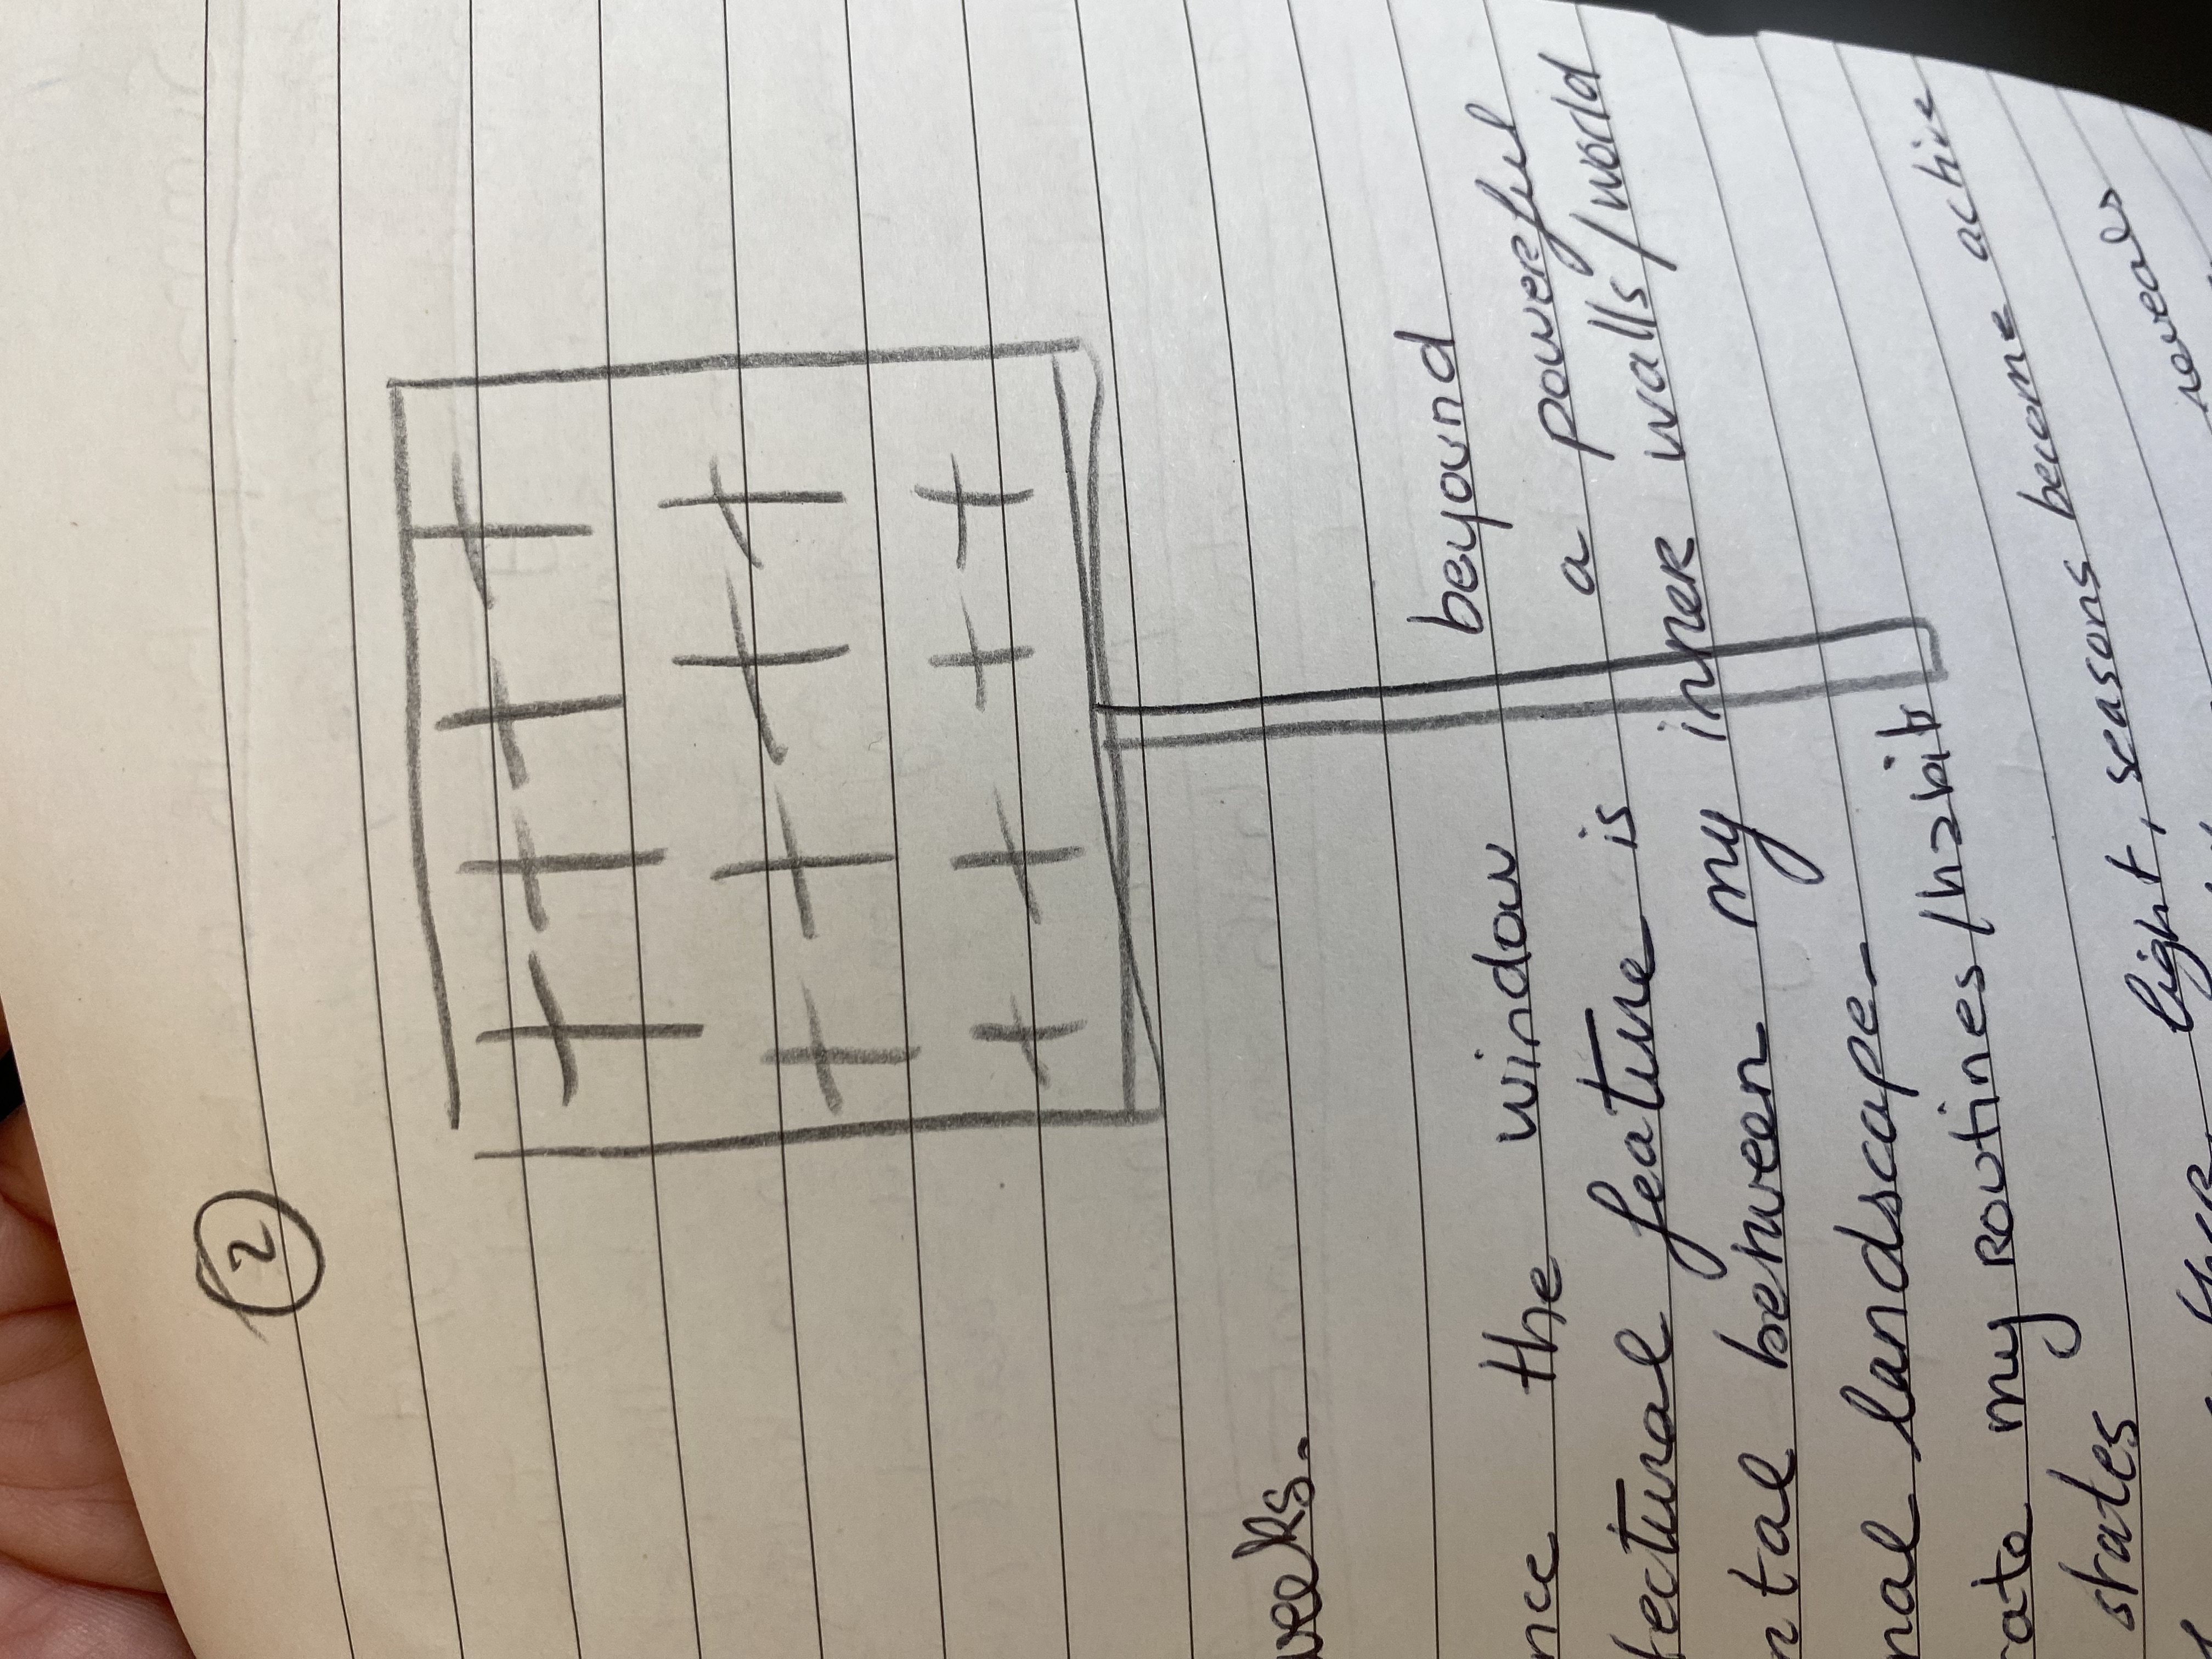 2
weeks.
nce the window beyound
tectural feature is a powerful
ntal between my inner walls/world
nal landscape-
rate my routines/habits
states
light, seasons become active
reveals